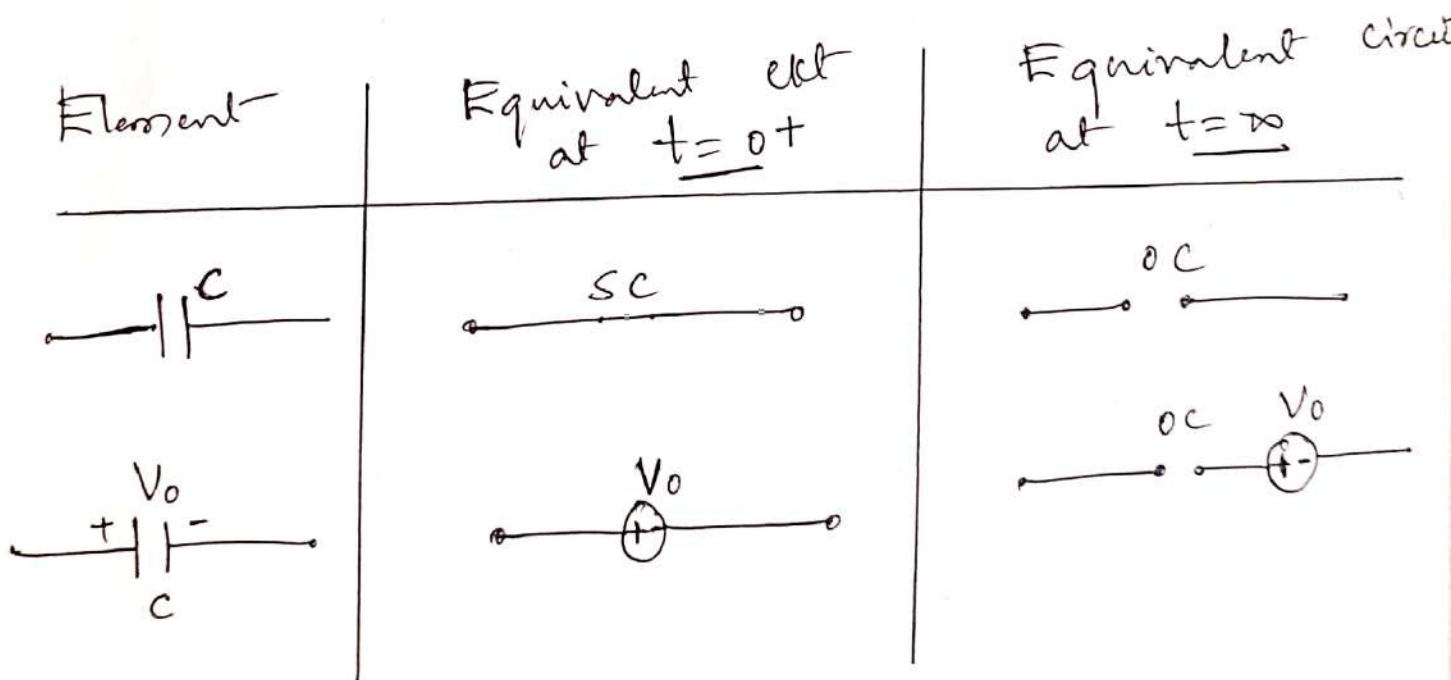 Element
Equivalent ckt
at t = 0+
Equivalent circui
at t = ∞
C
SC
OC
V0
+ -
C
V0
+ -
OC V0
+ -